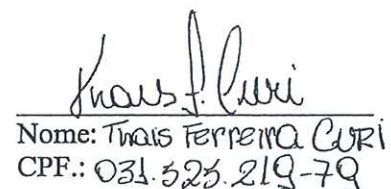 Thais F. Curi
Nome: Thais Ferreira CURi
CPF.: 031.525.219-79